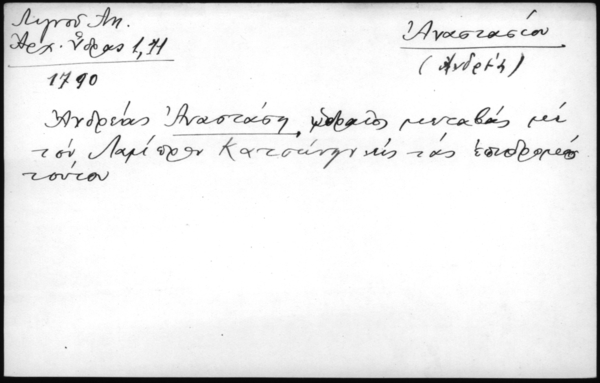 Λιγνοῦ Αη.
Ἀρχ. Ὕδρας 1, 71
1790
Ἀναστασίου
(Ἀνδρέας)
Ἀνδρέας Ἀναστάση, ὑδραῖος μεταβάς μέ
τόν Λάμπρον Κατσώνην εἰς τάς ἐπιδρομάς
τούτου